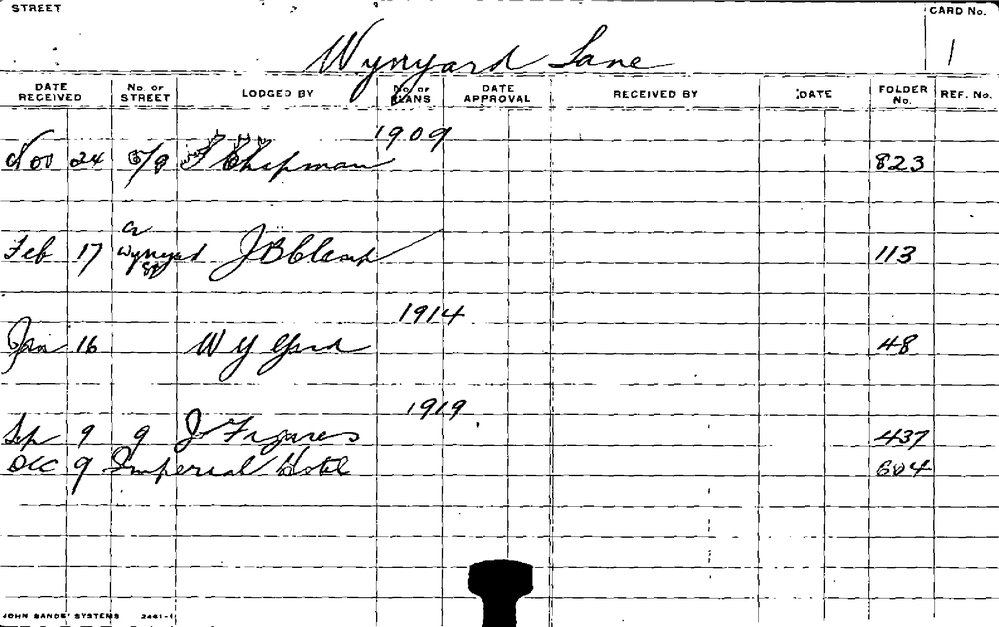 STREET
CARD No.
Wynyard Lane
1
DATE RECEIVED No. OF STREET LODGED BY No. OF PLANS DATE APPROVAL RECEIVED BY DATE FOLDER No. REF. No.
1909
Nov 24 5/9 F Chapman 823
Cr
Feb 17 Wynyard J B Clamp 113
St
1914
Jan 16 W Y Yard 48
1919
Sep 9 9 J Figares 437
Dec 9 Imperial Hotel 604
JOHN SANDS' SYSTEMS 2461-1